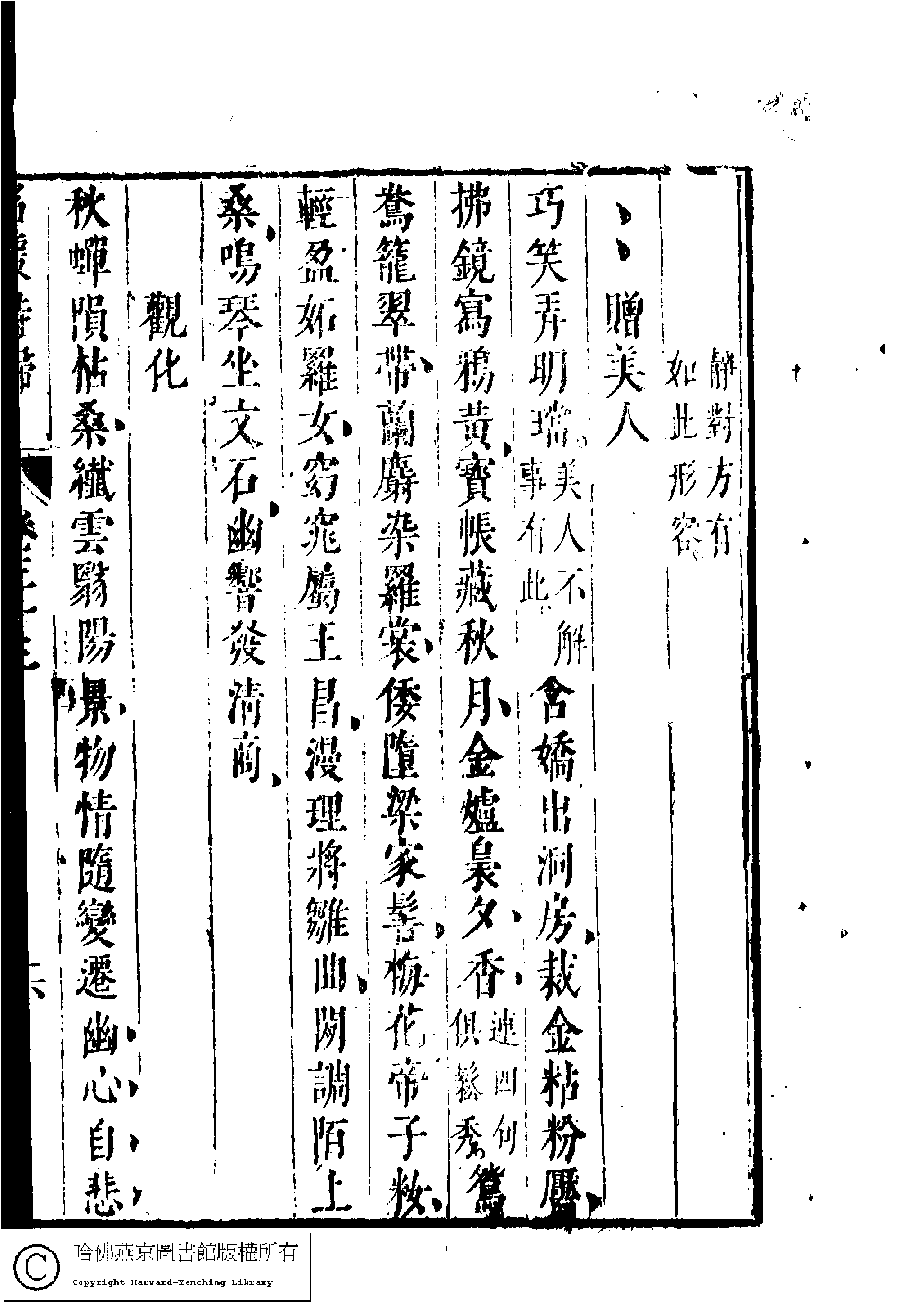 靜對方有
如此形容
贈美人
巧笑弄明璫美人不解事有此含嬌出洞房裁金粘粉靨
拂鏡寫鴉黃寶帳藏秋月金爐裊夕香連四句俱穠秀鴛
鴦籠翠帶蘭麝染羅裳倭墮梁家髻梅花帝子妝
輕盈妬羅女窈窕屬王昌漫理將雛曲閑調陌上
桑鳴琴坐文石幽響發清商
觀化
秋蟬隕枯桑纖雲翳陽景物情隨變遷幽心自悲
名媛詩歸
哈佛燕京圖書館版權所有
Copyright Harvard-Yenching Library